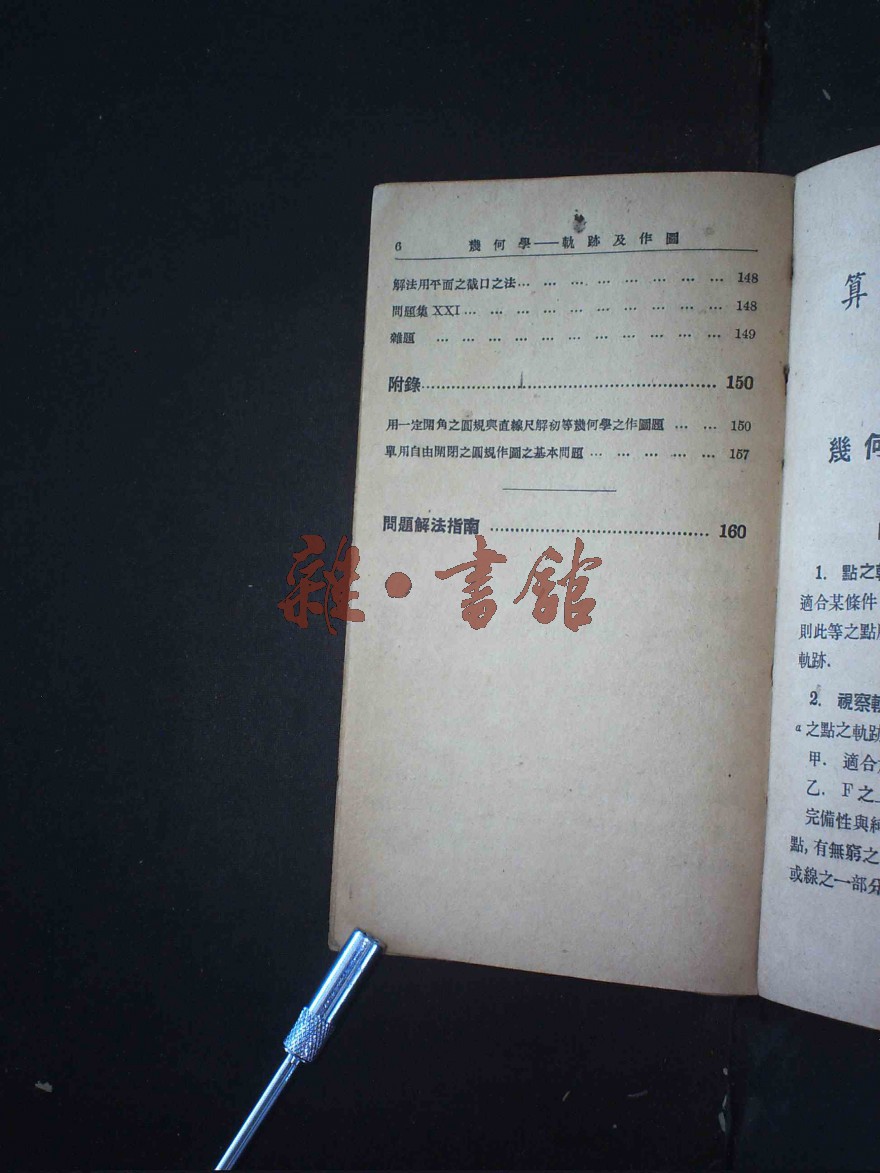 6 幾何學——軌跡及作圖
解法用平面之截口之法… … … … … … … … … 148
問題集 XXI… … … … … … … … … … … 148
雜題 … … … … … … … … … … … 149
附錄…………………………………………………… 150
用一定開角之圓規與直線尺解初等幾何學之作圖題 … … 150
單用自由開閉之圓規作圖之基本問題 … … … … … 157
問題解法指南 …………………………………… 160
雜·書館
算
幾何
1. 點之軌
適合某條件
則此等之點
軌跡.
2. 視察軌
a 之點之軌跡
甲. 適合
乙. F 之
完備性與
點,有無窮之
或線之一部分